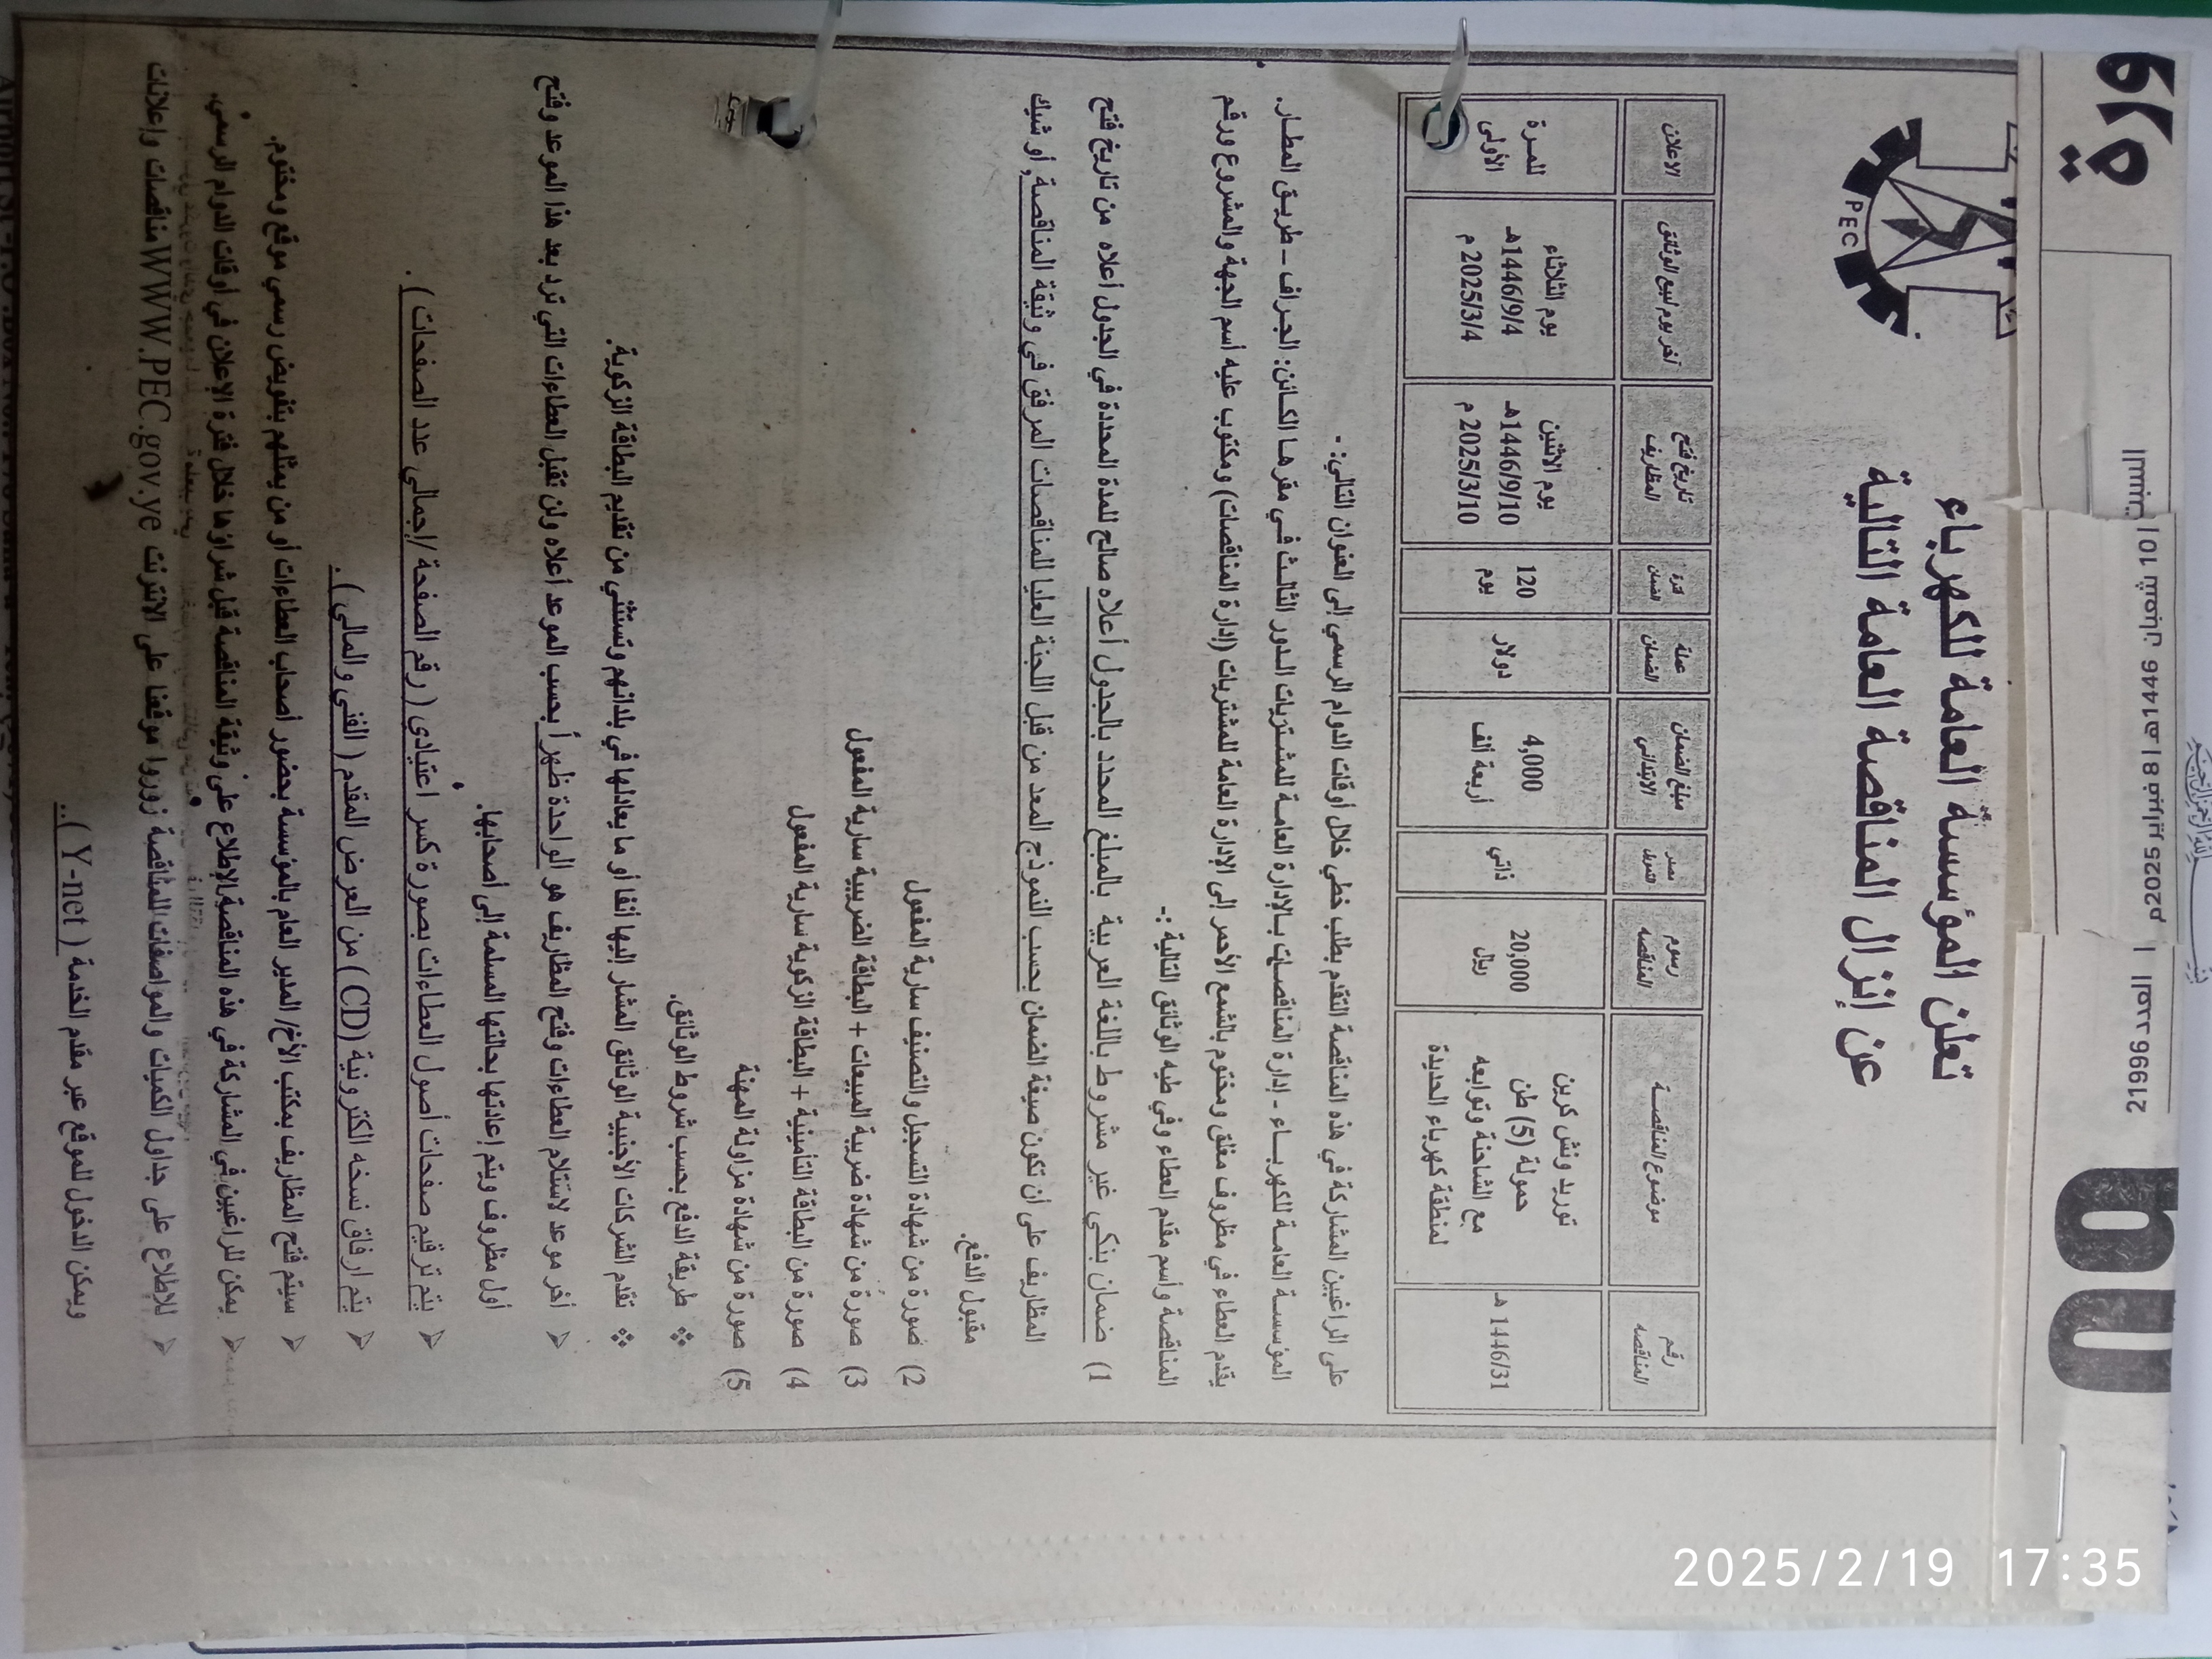 ورة
السبت | 10 شعبان 1446هـ | 8 فبراير 2025م | العدد 21996
PEC
تعلن المؤسسة العامة للكهرباء
عن إنزال المناقصة العامة التالية
رقم المناقصة | موضوع المناقصة | رسوم المناقصة | مصدر التمويل | مبلغ الضمان الابتدائي | عملة الضمان | فترة الضمان | تاريخ فتح المظاريف | آخر يوم لبيع الوثائق | الاعلان
1446/31 هـ | توريد ونش كرين حمولة (5) طن مع الشاحنة وتوابعه لمنطقة كهرباء الحديدة | 20,000 ريال | ذاتي | 4,000 أربعة ألف | دولار | 120 يوم | يوم الاثنين 1446/9/10هـ 2025/3/10 م | يوم الثلاثاء 1446/9/4هـ 2025/3/4 م | للمرة الأولى
على الراغبين المشاركة في هذه المناقصة التقدم بطلب خطي خلال أوقات الدوام الرسمي إلى العنوان التالي: -
المؤسسة العامة للكهرباء - إدارة المناقصات بالإدارة العامة للمشتريات الدور الثالث في مقرها الكائن: الجراف – طريق المطار.
يقدم العطاء في مظروف مغلق ومختوم بالشمع الأحمر إلى الإدارة العامة للمشتريات (إدارة المناقصات) ومكتوب عليه أسم الجهة والمشروع ورقم
المناقصة وأسم مقدم العطاء وفي طيه الوثائق التالية :-
1) ضمان بنكي غير مشروط باللغة العربية بالمبلغ المحدد بالجدول أعلاه صالح للمدة المحددة في الجدول أعلاه من تاريخ فتح
المظاريف على أن تكون صيغة الضمان بحسب النموذج المعد من قبل اللجنة العليا للمناقصات المرفق في وثيقة المناقصة, أو شيك
مقبول الدفع.
2) صورة من شهادة التسجيل والتصنيف سارية المفعول
3) صورة من شهادة ضريبة المبيعات + البطاقة الضريبية سارية المفعول
4) صورة من البطاقة التأمينية + البطاقة الزكوية سارية المفعول
5) صورة من شهادة مزاولة المهنة
❖ طريقة الدفع بحسب شروط الوثائق.
❖ تقدم الشركات الأجنبية الوثائق المشار إليها أنفا أو ما يعادلها في بلدانهم وتستثنى من تقديم البطاقة الزكوية.
➢ أخر موعد لاستلام العطاءات وفتح المظاريف هو الواحدة ظهراً بحسب الموعد أعلاه ولن تقبل العطاءات التي ترد بعد هذا الموعد وفتح
أول مظروف ويتم إعادتها بحالتها المسلمة إلى أصحابها.
➢ يتم ترقيم صفحات أصول العطاءات بصورة كسر اعتيادي ( رقم الصفحة /إجمالي عدد الصفحات ) .
➢ يتم ارفاق نسخه الكترونية (CD) من العرض المقدم ( الفني والمالي ) .
➢ سيتم فتح المظاريف بمكتب الأخ/ المدير العام بالمؤسسة بحضور أصحاب العطاءات أو من يمثلهم بتفويض رسمي موقع ومختوم.
➢ يمكن للراغبين في المشاركة في هذه المناقصة الإطلاع على وثيقة المناقصة قبل شراؤها خلال فترة الإعلان في أوقات الدوام الرسمي.
➢ للإطلاع على جداول الكميات والمواصفات للمناقصة زوروا موقعنا على الانترنت WWW.PEC.gov.ye مناقصات وإعلانات
ويمكن الدخول للموقع عبر مقدم الخدمة ( Y-net )..
2025/2/19 17:35